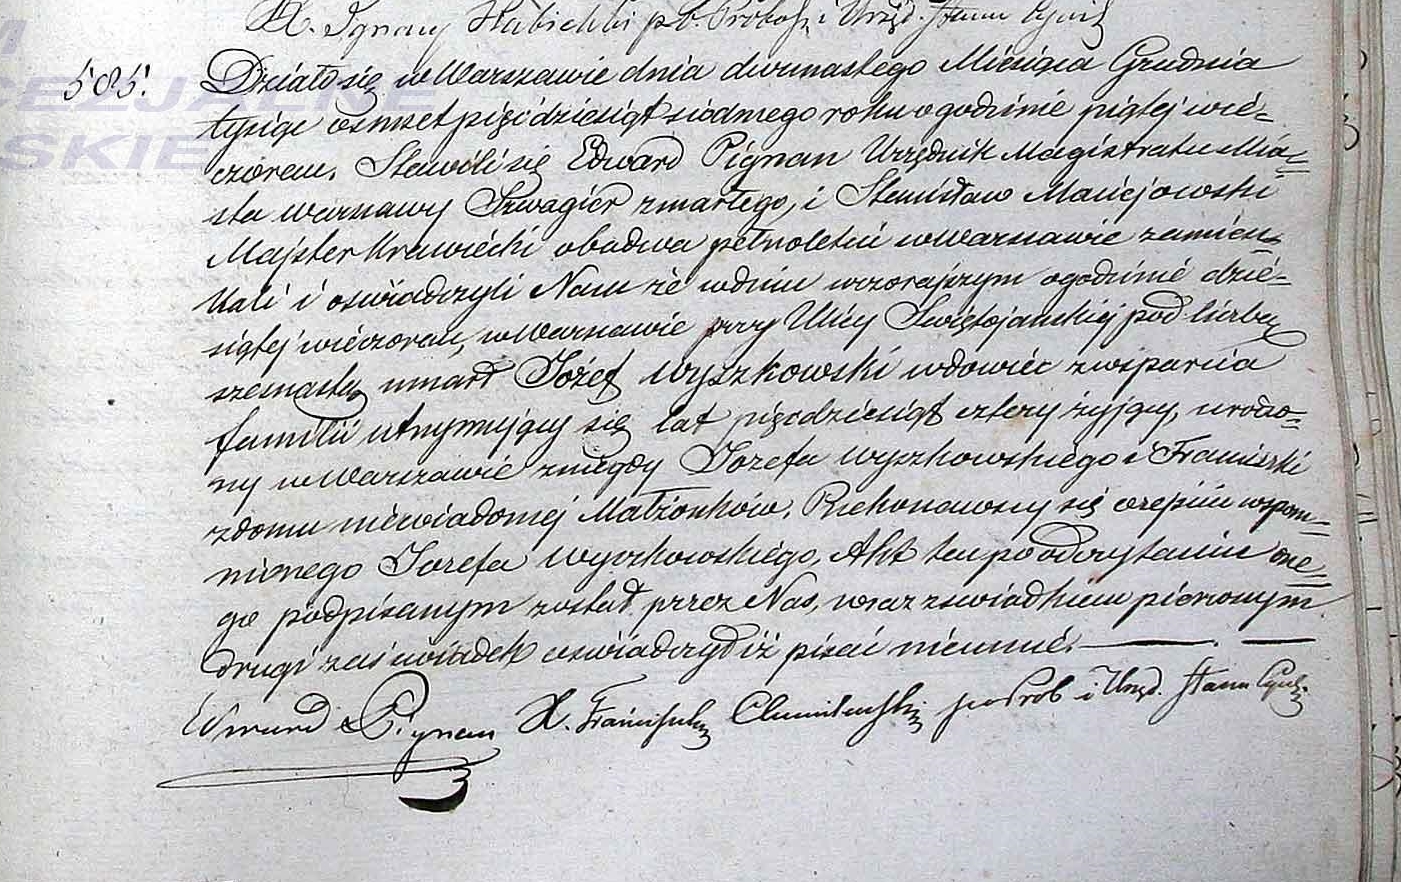 X. Ignacy Kubicki p.o. Prob. i Urzęd. Stanu Cywil
M
CEZJALNE
SKIE
585. Działo się w Warszawie dnia dwunastego Miesiąca Grudnia
tysiąc osmset pięćdziesiąt siódmego roku o godzinie piątej wie-
czorem. Stawili się Edward Pignan Urzędnik Magistratu Mia-
sta Warszawy Szwagier zmarłego, i Stanisław Maciejowski
Majster Krawiecki obadwa pełnoletni w Warszawie zamiesz
kali i oświadczyli Nam że w dniu wczorajszym o godzinie dzie-
siątej wieczorem, w Warszawie przy Ulicy Świętojańskiej pod liczbą
szesnastą umarł Józef Wyszkowski wdowiec z wsparcia
familii utrzymujący się lat pięćdziesiąt cztery żyjący, urodzo-
ny w Warszawie z niegdy Józefa Wyszkowskiego i Franciszki
z domu niewiadomej Małżonków. Przekonawszy się o zejściu wspom-
nionego Józefa Wyszkowskiego, Akt ten po odczytaniu one-
go podpisanym został przez Nas, wraz z świadkiem pierwszym
drugi zaś świadek oświadczył iż pisać nieumie.
Edward Pignan X. Franciszek po Prob i Urzęd. Stanu Cywil